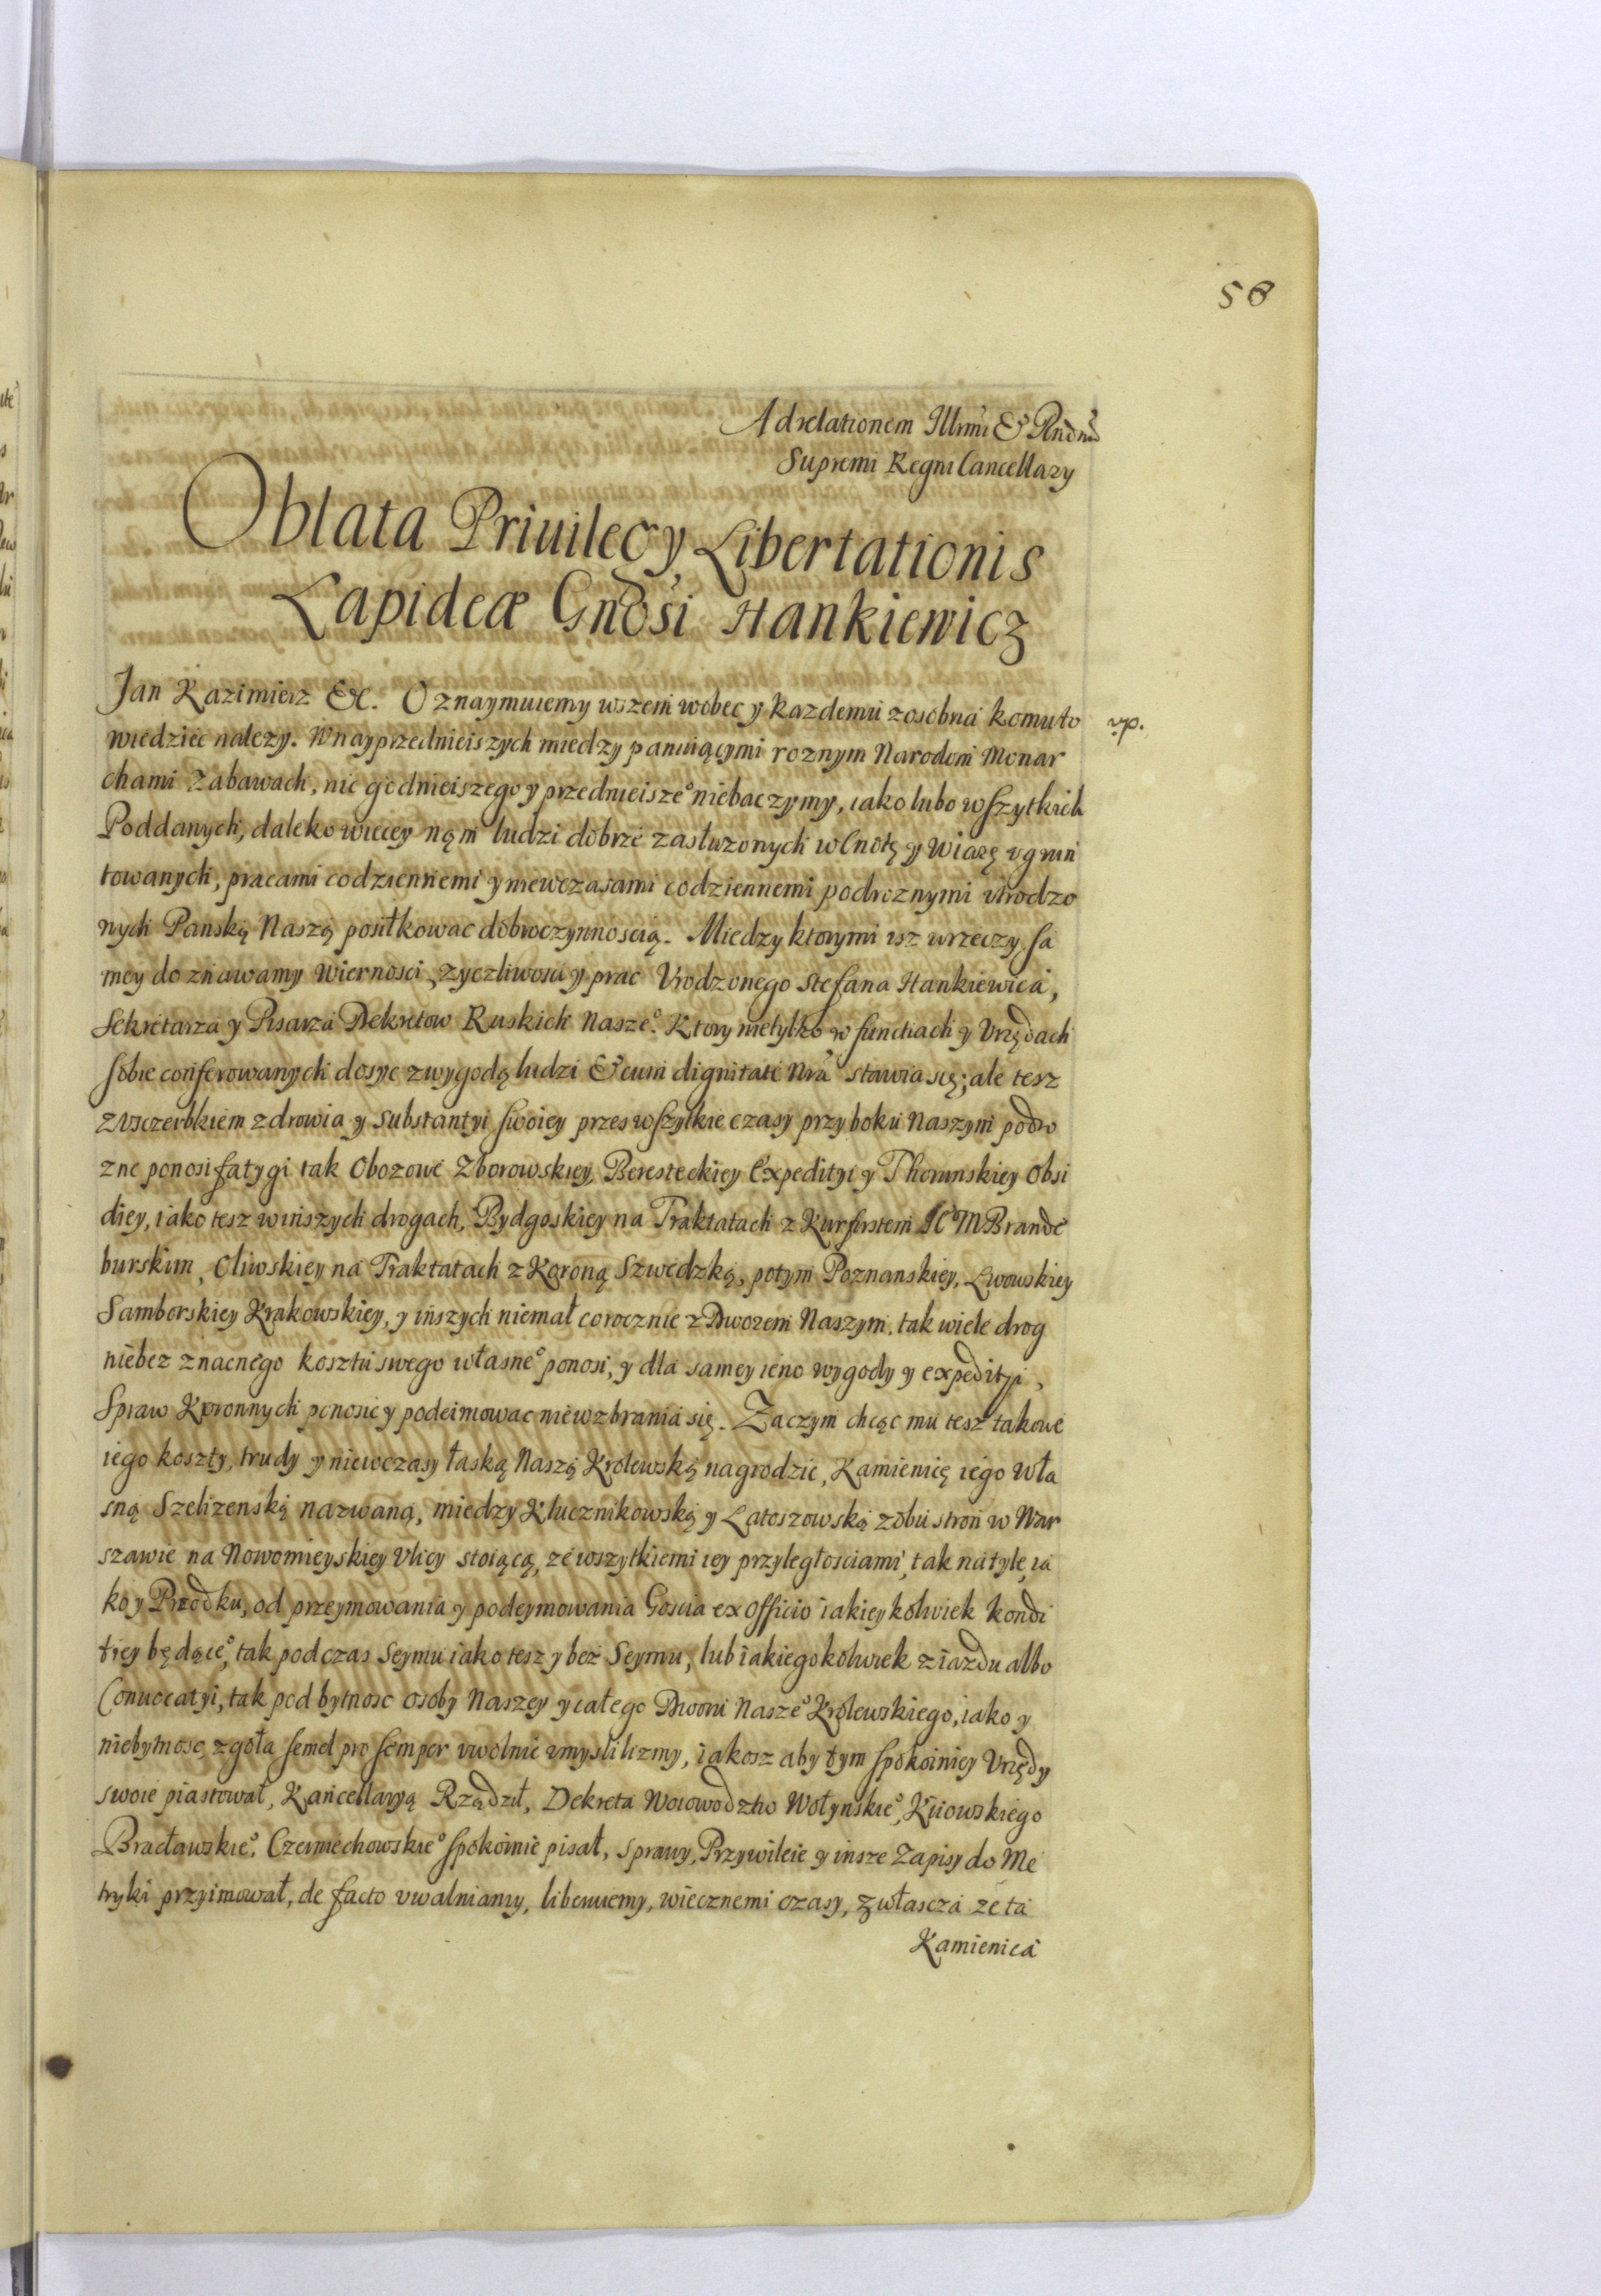 58
Ad relationem Illmi & Rndmi
Supremi Regni Cancellary
Oblata Priuilegy Libertationis
Lapideæ Gndsi Hankiewicz
Jan Kazimierz &c. Oznaymuiemy wszem wobec y kazdemu zosobna komu to
vp.
wiedziec nalezy. W nayprzednieiszych miedzy panuiącymi roznym Narodom Monar
chami Zabawach, nic godnieiszego y przednieisze° niebaczymy, iako lubo wszytkich
Poddanych, daleko wiecey nąm ludzi dobrze zasłuzonych wCnotę y Wiarę vgrun
towanych, pracami codziennemi y niewczasami codziennemi podroznymi vtrodzo
nych Panską Naszą posiłkowac dobroczynnoscią. Miedzy ktorymi isz wrzeczy sa
mey doznawamy Wiernosci, zyczliwosci y prac Vrodzonego Stefana Hankiewica,
Sekretarza y Pisarza Dekretow Ruskich Nasze°. Ktory nietylko w functiach y Vrzędach
sobie conferowanych dosyc zwygodą ludzi & cum dignitate Nra stawia się; ale tesz
zvsczerbkiem zdrowia y substantyi swoiey przes wszytkie czasy przy boku Naszym podro
zne ponosi fatygi tak Obozowe Zborowskiey, Beresteckiey Expedityi y Thorunskiey Obsi
diey, iako tesz winszych drogach, Bydgoskiey na Traktatach z Kurfirstem JCM Brande
burskim, Oliwskiey na Traktatach z Koroną Szwedzką, potym Poznanskiey, Lwowskiey
Samborskiey Krakowskiey, y inszych niemał corocznie z Dworem Naszym. tak wiele drog
niebez znacnego kosztu swego własne° ponosi, y dla samey ieno wygody y expeditji,
Spraw Koronnych ponosic y podeimowac niewzbrania się. Zaczym chcąc mu tesz takowe
iego koszty, trudy y niewczasy łaską Naszą Krolewską nagrodzic, Kamienicę iego Wła
sną Szelizenską nazwaną, miedzy Klucznikowską y Latoszowską zobu stron w War
szawie na Nowomieyskiey Vlicy stoiącą, ze wszytkiemi iey przyległosciami, tak natyle, ia
ko y Przodku, od przeymowania y podeymowania Goscia ex officio iakieykolwiek kondi
tiey będące°, tak podczas Seymu iako tesz y bez Seymu, lub iakiegokolwiek ziazdu albo
Conuocatyi, tak pod bytnosc osoby Naszey y całego Dworu Nasze° Krolewskiego, iako y
niebytnosc, zgoła semel pro semper vwolnic vmyslilizmy, iakosz aby tym spokoiniey Vrzędy
swoie piastował, Kancellaryą Rządził, Dekreta Woiowodztw Wołynskie°, Kiiowskiego
Bracławskie°, Czerniechowskie° spokoinie pisał, sprawy, Przywileie y insze Zapisy do Me
tryki przyimował, de facto vwalniamy, liberuiemy, wiecznemi czasy, zwłascza ze ta
Kamienica